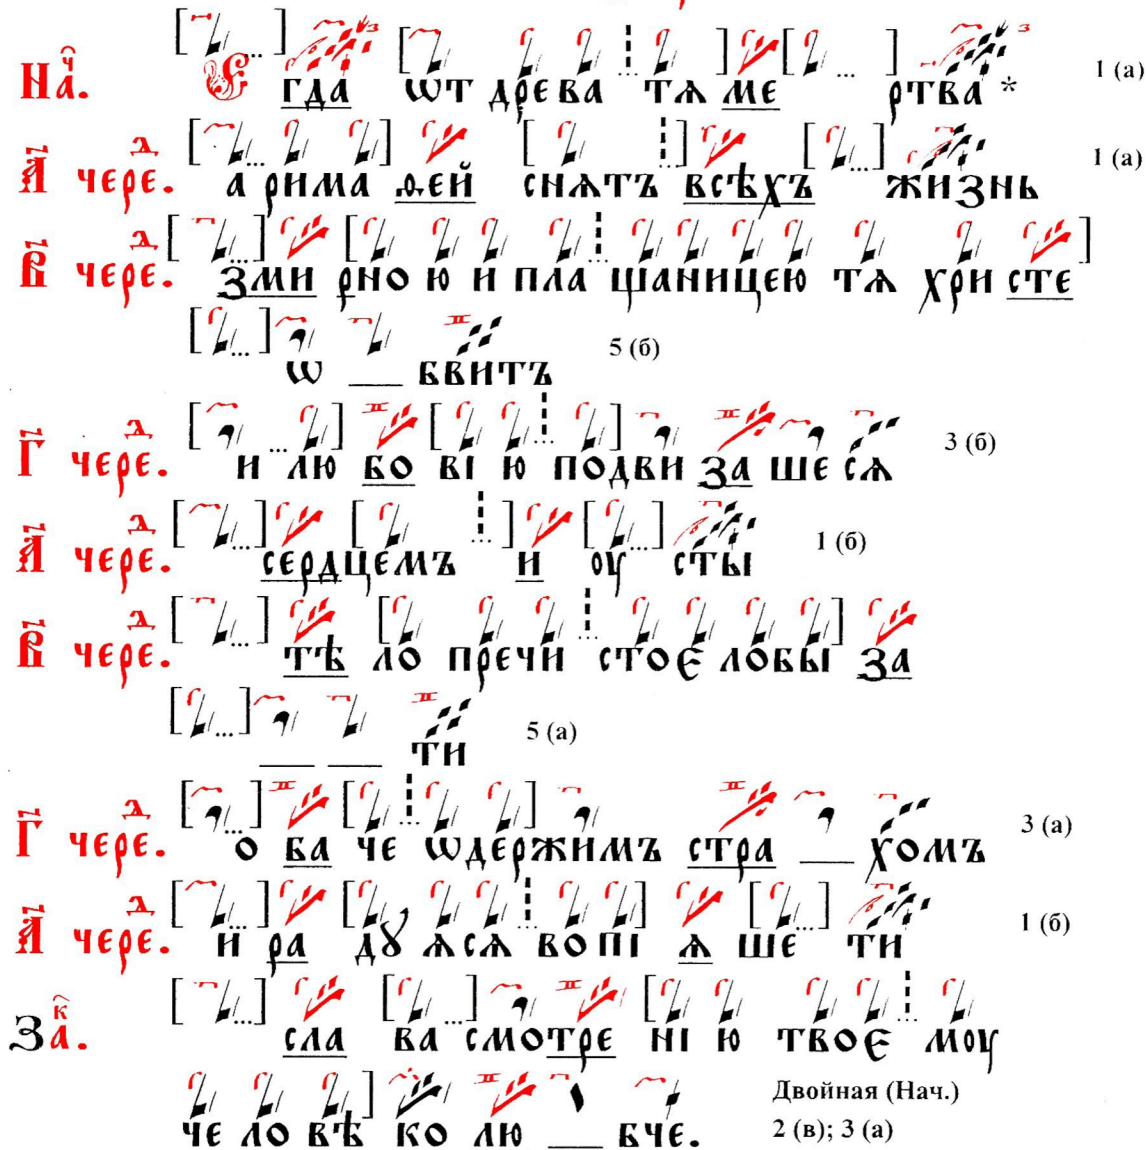 На҃ч. Є гда ѿт древа тѧ ме ртва * 1 (а)
А҃ чере д. а рима ѳей снѧтъ всѣхъ жизнь 1 (а)
В҃ чере д. зми рною и пла щаницею тѧ хри сте
ѡ __ бвитъ 5 (б)
Г҃ чере д. и лю бо вію подви за ше сѧ 3 (б)
А҃ чере д. сердцемъ и оу сты 1 (б)
В҃ чере д. тѣ ло пречи стоє лобы за
__ __ ти 5 (а)
Г҃ чере д. о ба че ѡдержимъ стра __ хомъ 3 (а)
А҃ чере д. и ра дꙋ ѧсѧ вопі ѧ ше ти 1 (б)
За к. сла ва смотре ні ю твоє моу
че ло вѣ ко лю __ бче. Двойная (Нач.)
2 (в); 3 (а)